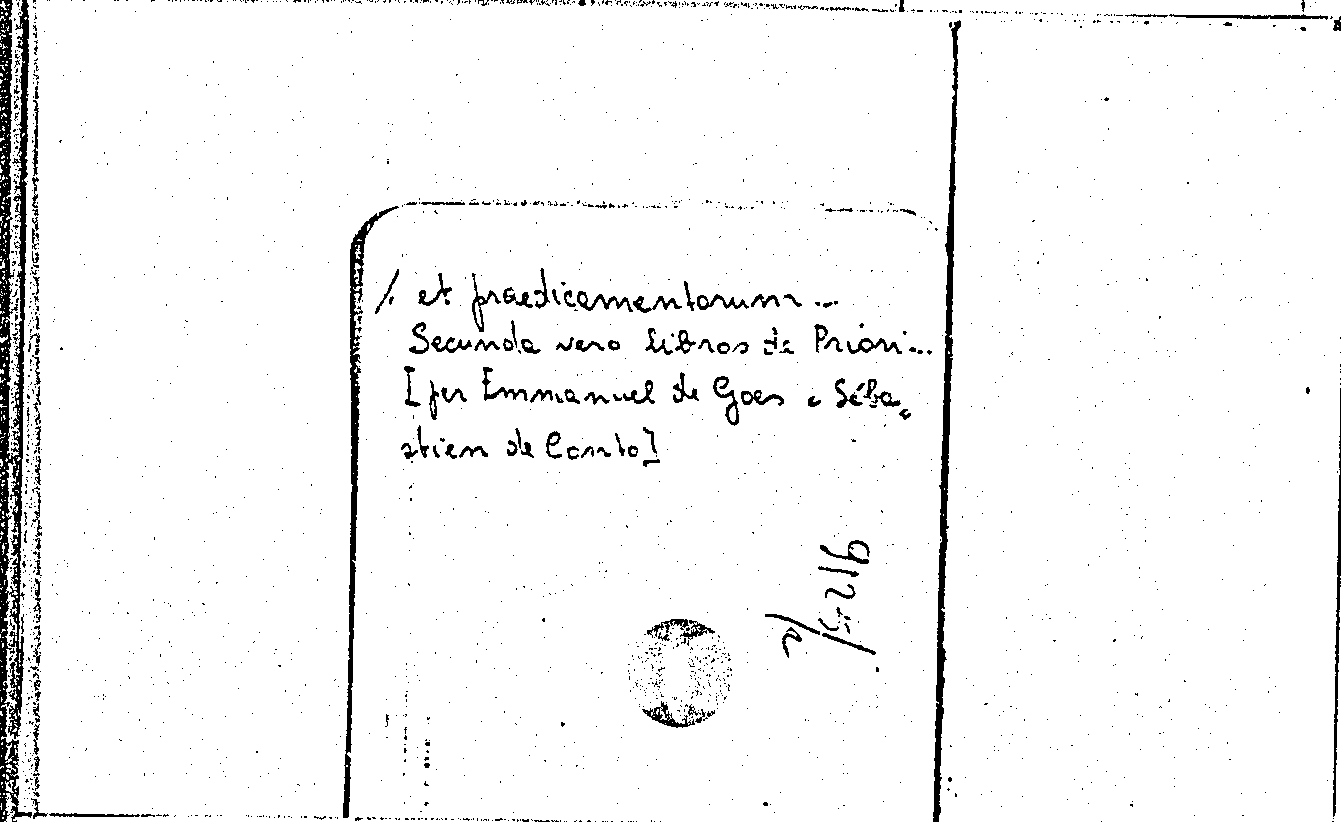 /. et praedicamentorum...
Secunda vero libros de Priori...
[per Emmanuel de Goes e Séba„
stien de Conto]